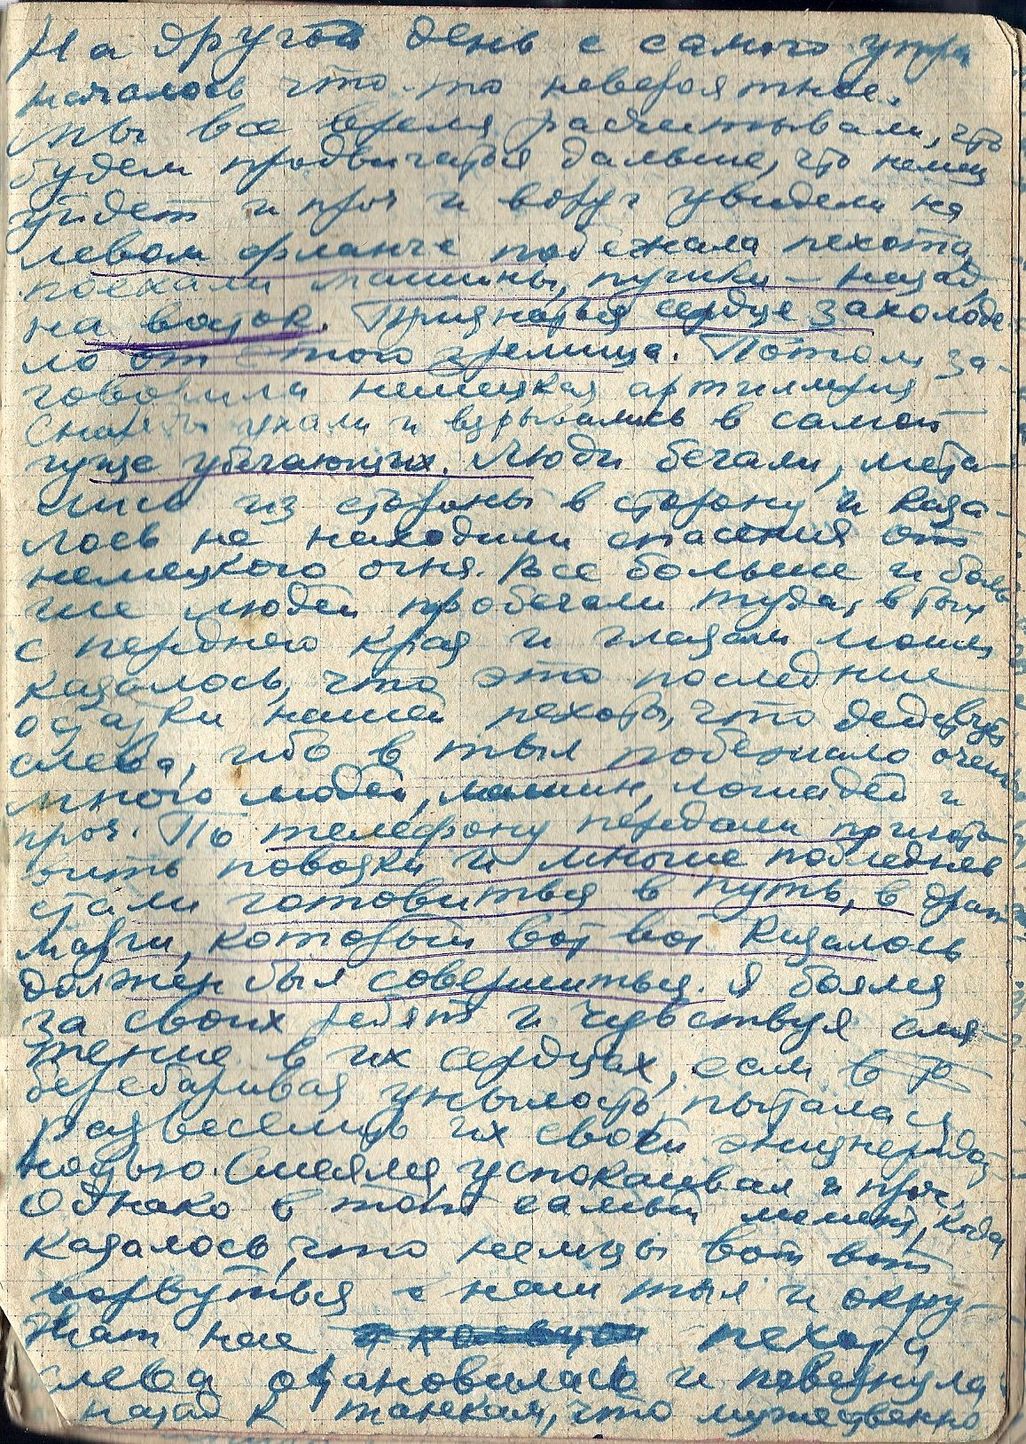 На другой день с самого утра
началось что-то невероятное.
Мы все время расчитывали, что
будем продвигаться дальше, что немец
уйдет и проч и вдруг увидели на
левом фланге побежала пехота,
поехали машины, пушки – назад,
на восток. Признаться сердце захолоде-
ло от этого зрелища. Потом за-
говорила немецкая артиллерия
Снаряды упали и взрывались в самой
гуще убегающих. Люди бегали, мета-
лись из стороны в сторону и каза-
лось не находили спасения от
немецкого огня. Все больше и боль
ше людей пробегали туда, в тыл
с переднего края и глазам моим
казалось, что это последние
остатки нашей пехоты, что действуют
слева, ибо в тыл побежало очень
много людей, машин, лошадей и
проч. По телефону передали пригото-
вить повозки и многие последнее
стали готовиться в путь, в драп
марш, который вот вот казалось
должен был совершиться. Я боялся
за своих ребят и чувствуя смя-
тение в их сердцах, если
перебаривая унылость, пытался
развеселить их своей жизнерадост
ностью. Смеялся, успокаивал и проч.
Однако в тот самый момент, когда
казалось, что немцы вот вот
ворвуться в наш тыл и окру-
жат нас, пехота
слева остановилась и повернула
назад к танкам, что мужественно